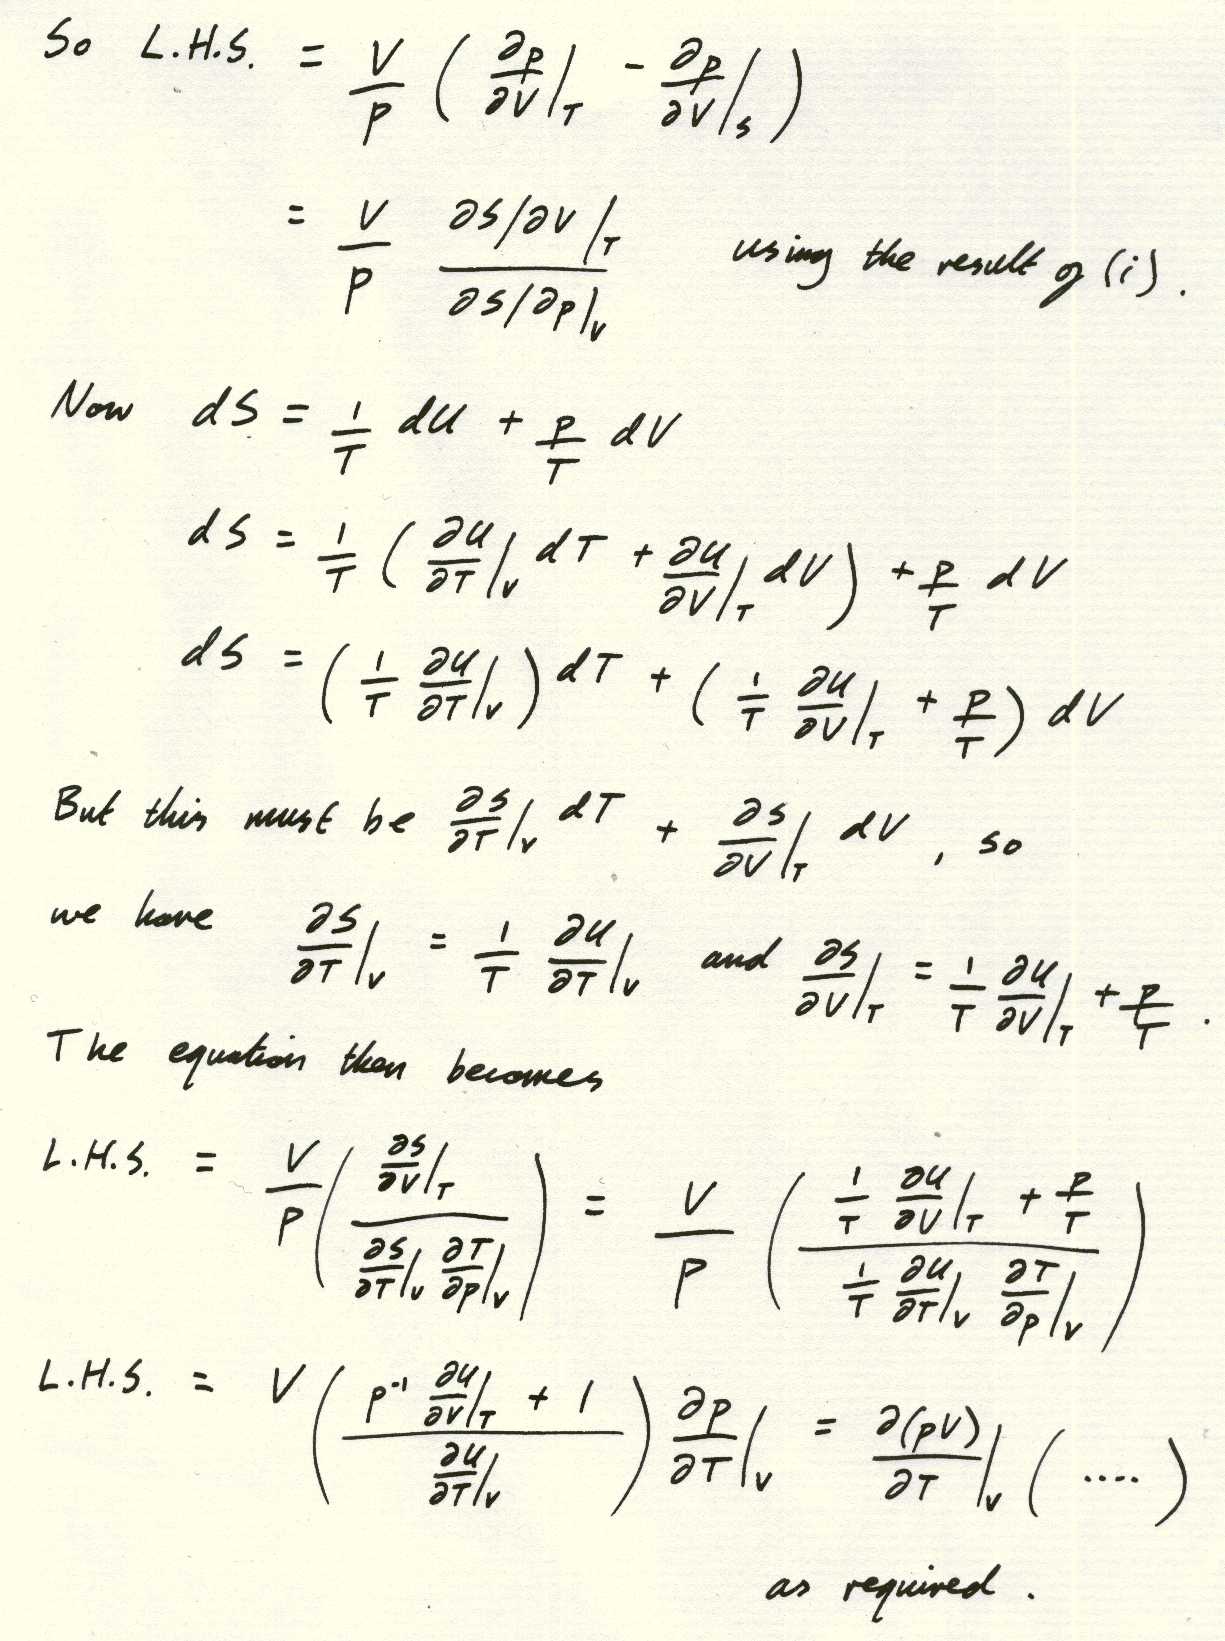 So L.H.S. = V/p ( ∂p/∂V|_T - ∂p/∂V|_S )
= V/p (∂S/∂V|_T)/(∂S/∂p|_V) using the result of (i).
Now dS = 1/T dU + p/T dV
dS = 1/T ( ∂U/∂T|_V dT + ∂U/∂V|_T dV ) + p/T dV
dS = ( 1/T ∂U/∂T|_V ) dT + ( 1/T ∂U/∂V|_T + p/T ) dV
But this must be ∂S/∂T|_V dT + ∂S/∂V|_T dV , so
we have ∂S/∂T|_V = 1/T ∂U/∂T|_V and ∂S/∂V|_T = 1/T ∂U/∂V|_T + p/T .
The equation then becomes
L.H.S. = V/p ( (∂S/∂V|_T)/(∂S/∂T|_V ∂T/∂p|_V) ) = V/p ( (1/T ∂U/∂V|_T + p/T)/(1/T ∂U/∂T|_V ∂T/∂p|_V) )
L.H.S. = V ( (p⁻¹ ∂U/∂V|_T + 1)/(∂U/∂T|_V) ) ∂p/∂T|_V = ∂(pV)/∂T|_V ( .... )
as required .